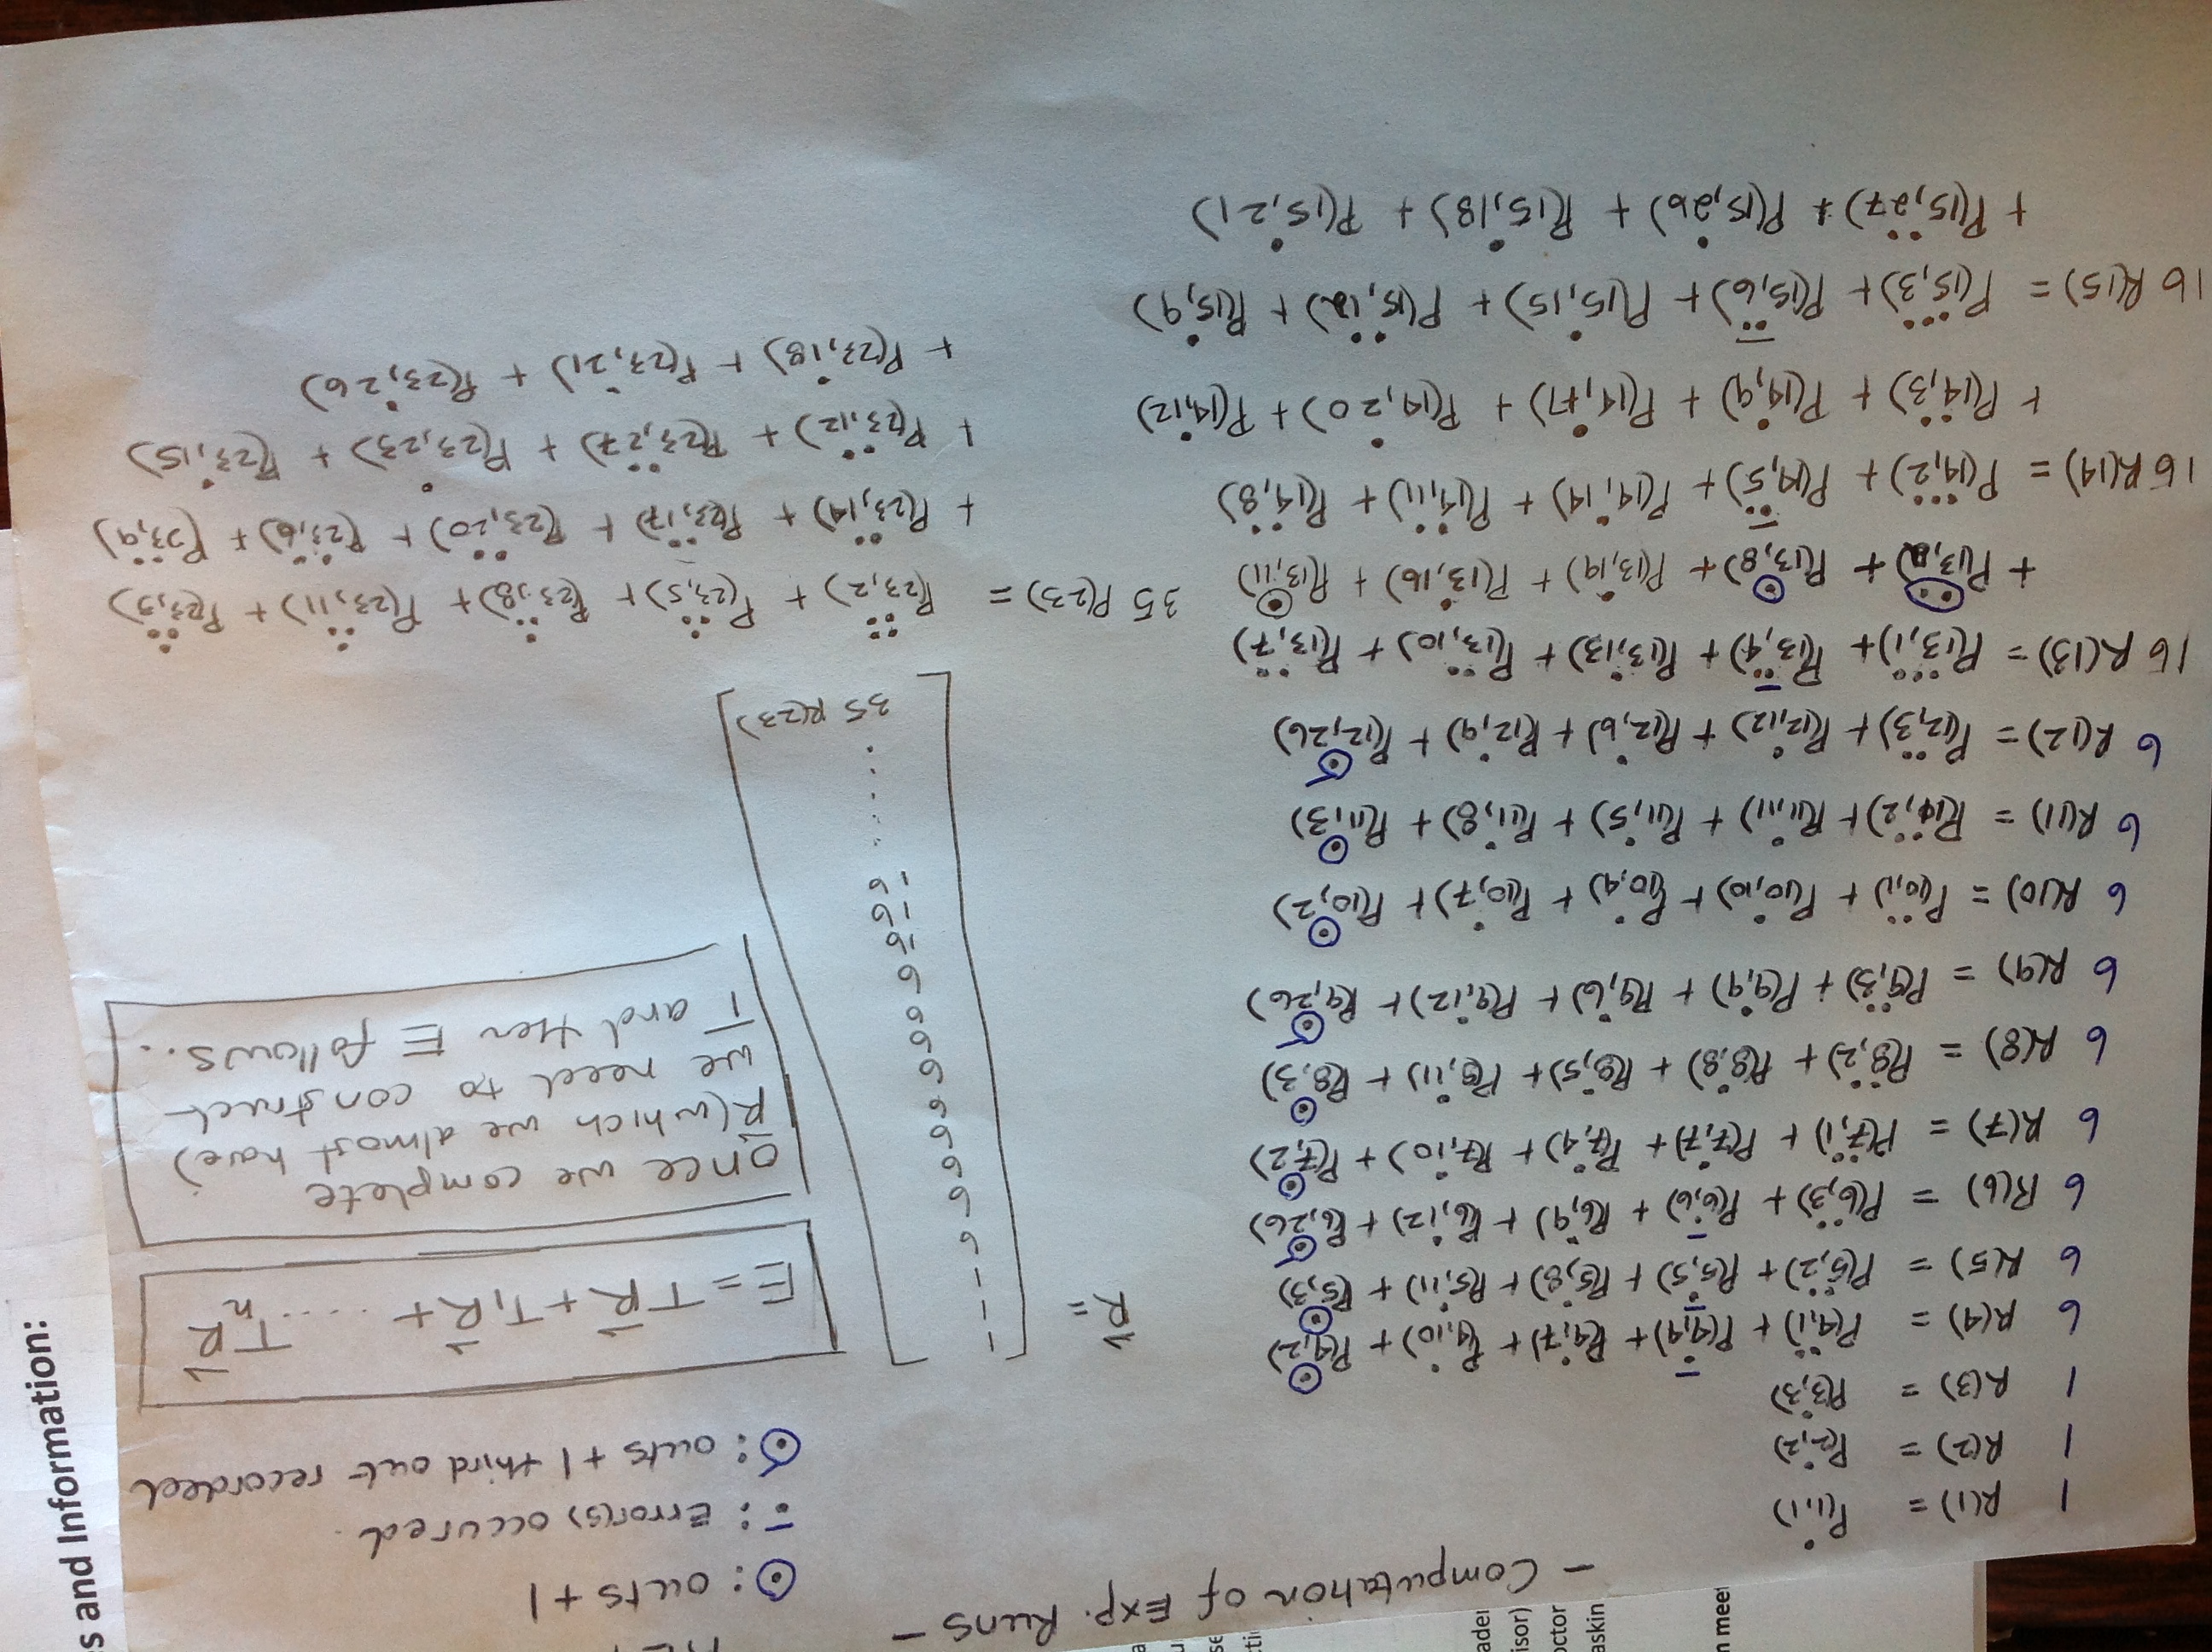 - Computation of Exp. Runs -
⊙: outs +1
∸: Error(s) occured.
outs +1 third out recorded
1 R(1) = P(1,1)
1 R(2) = P(2,2)
1 R(3) = P(3,3)
6 R(4) = P(4,1) + P(4,4) + P(4,7) + P(4,10) + P(4,2)
6 R(5) = P(5,2) + P(5,5) + P(5,8) + P(5,11) + P(5,3)
6 R(6) = P(6,3) + P(6,6) + P(6,9) + P(6,12) + P(6,26)
6 R(7) = P(7,1) + P(7,7) + P(7,4) + P(7,10) + P(7,2)
6 R(8) = P(8,2) + P(8,8) + P(8,5) + P(8,11) + P(8,3)
6 R(9) = P(9,3) + P(9,9) + P(9,6) + P(9,12) + P(9,26)
6 R(10) = P(10,1) + P(10,10) + P(10,4) + P(10,7) + P(10,2)
6 R(11) = P(11,2) + P(11,11) + P(11,5) + P(11,8) + P(11,3)
6 R(12) = P(12,3) + P(12,12) + P(12,6) + P(12,9) + P(12,26)
16 R(13) = P(13,1) + P(13,4) + P(13,13) + P(13,10) + P(13,7)
+ P(13,2) + P(13,8) + P(13,19) + P(13,16) + P(13,11)
16 R(14) = P(14,2) + P(14,5) + P(14,14) + P(14,11) + P(14,8)
+ P(14,3) + P(14,9) + P(14,17) + P(14,20) + P(14,12)
16 R(15) = P(15,3) + P(15,6) + P(15,15) + P(15,12) + P(15,9)
+ P(15,27) + P(15,26) + P(15,18) + P(15,21)
R⃗ =
1
1
1
6
6
6
6
6
6
6
6
6
16
16
16
35 R(23)
E = TR⃗ + T₁R⃗ + ..... TₙR⃗
once we complete
R⃗ (which we almost have)
we need to construct
T and then E follows..
35 P(23) = P(23,2) + P(23,5) + P(23,8) + P(23,11) + P(23,3)
+ P(23,14) + P(23,17) + P(23,20) + P(23,6) + P(23,9)
+ P(23,12) + P(23,27) + P(23,23) + P(23,15)
+ P(23,18) + P(23,21) + P(23,26)
s and Information:
n mee
askin
octor
isor)
ader